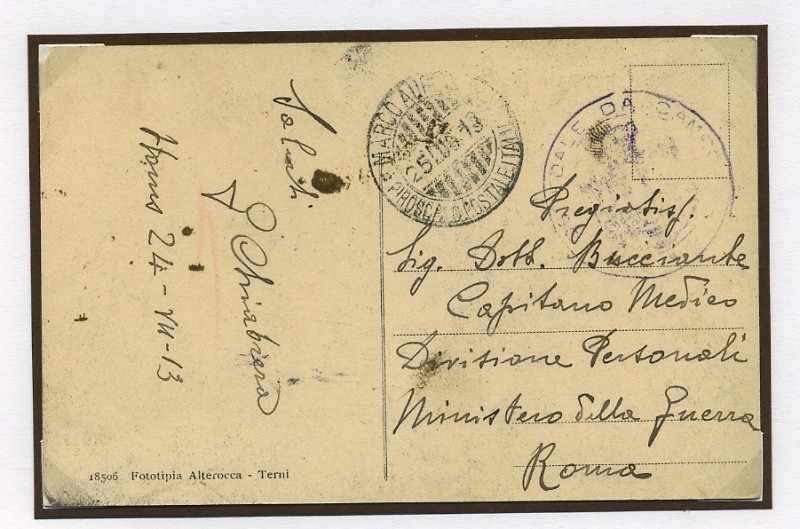 Saluti
Chiabrera
Homs 24-VII-13
MARCO AU
25 LUG 13
PIROSCAFO POSTALE ITALI
DALE DA CAMPO
Pregiatiss.
Sig. Dott. Bucciante
Capitano Medico
Divisione Personali
Ministero della Guerra
Roma
18506 Fototipia Alterocca - Terni